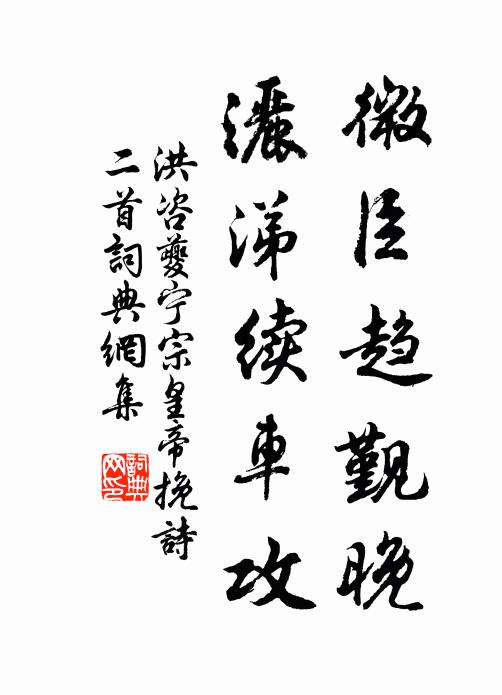 微臣趋觐晚
灑涕续車攻
洪咨夔宁宗皇帝挽詩
二首詞典網集
詞典
网印